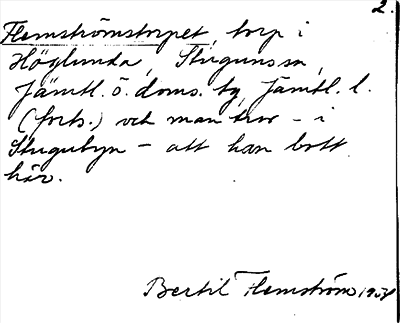 2.
Flemströmstorpet, torp i
Höglunda, Stuguns sn,
Jämtl. ö. doms. tg, Jämtl. l.
(forts.) och man tror – i
Stugubyn – att han bott
här.
Bertil Flemström 1954